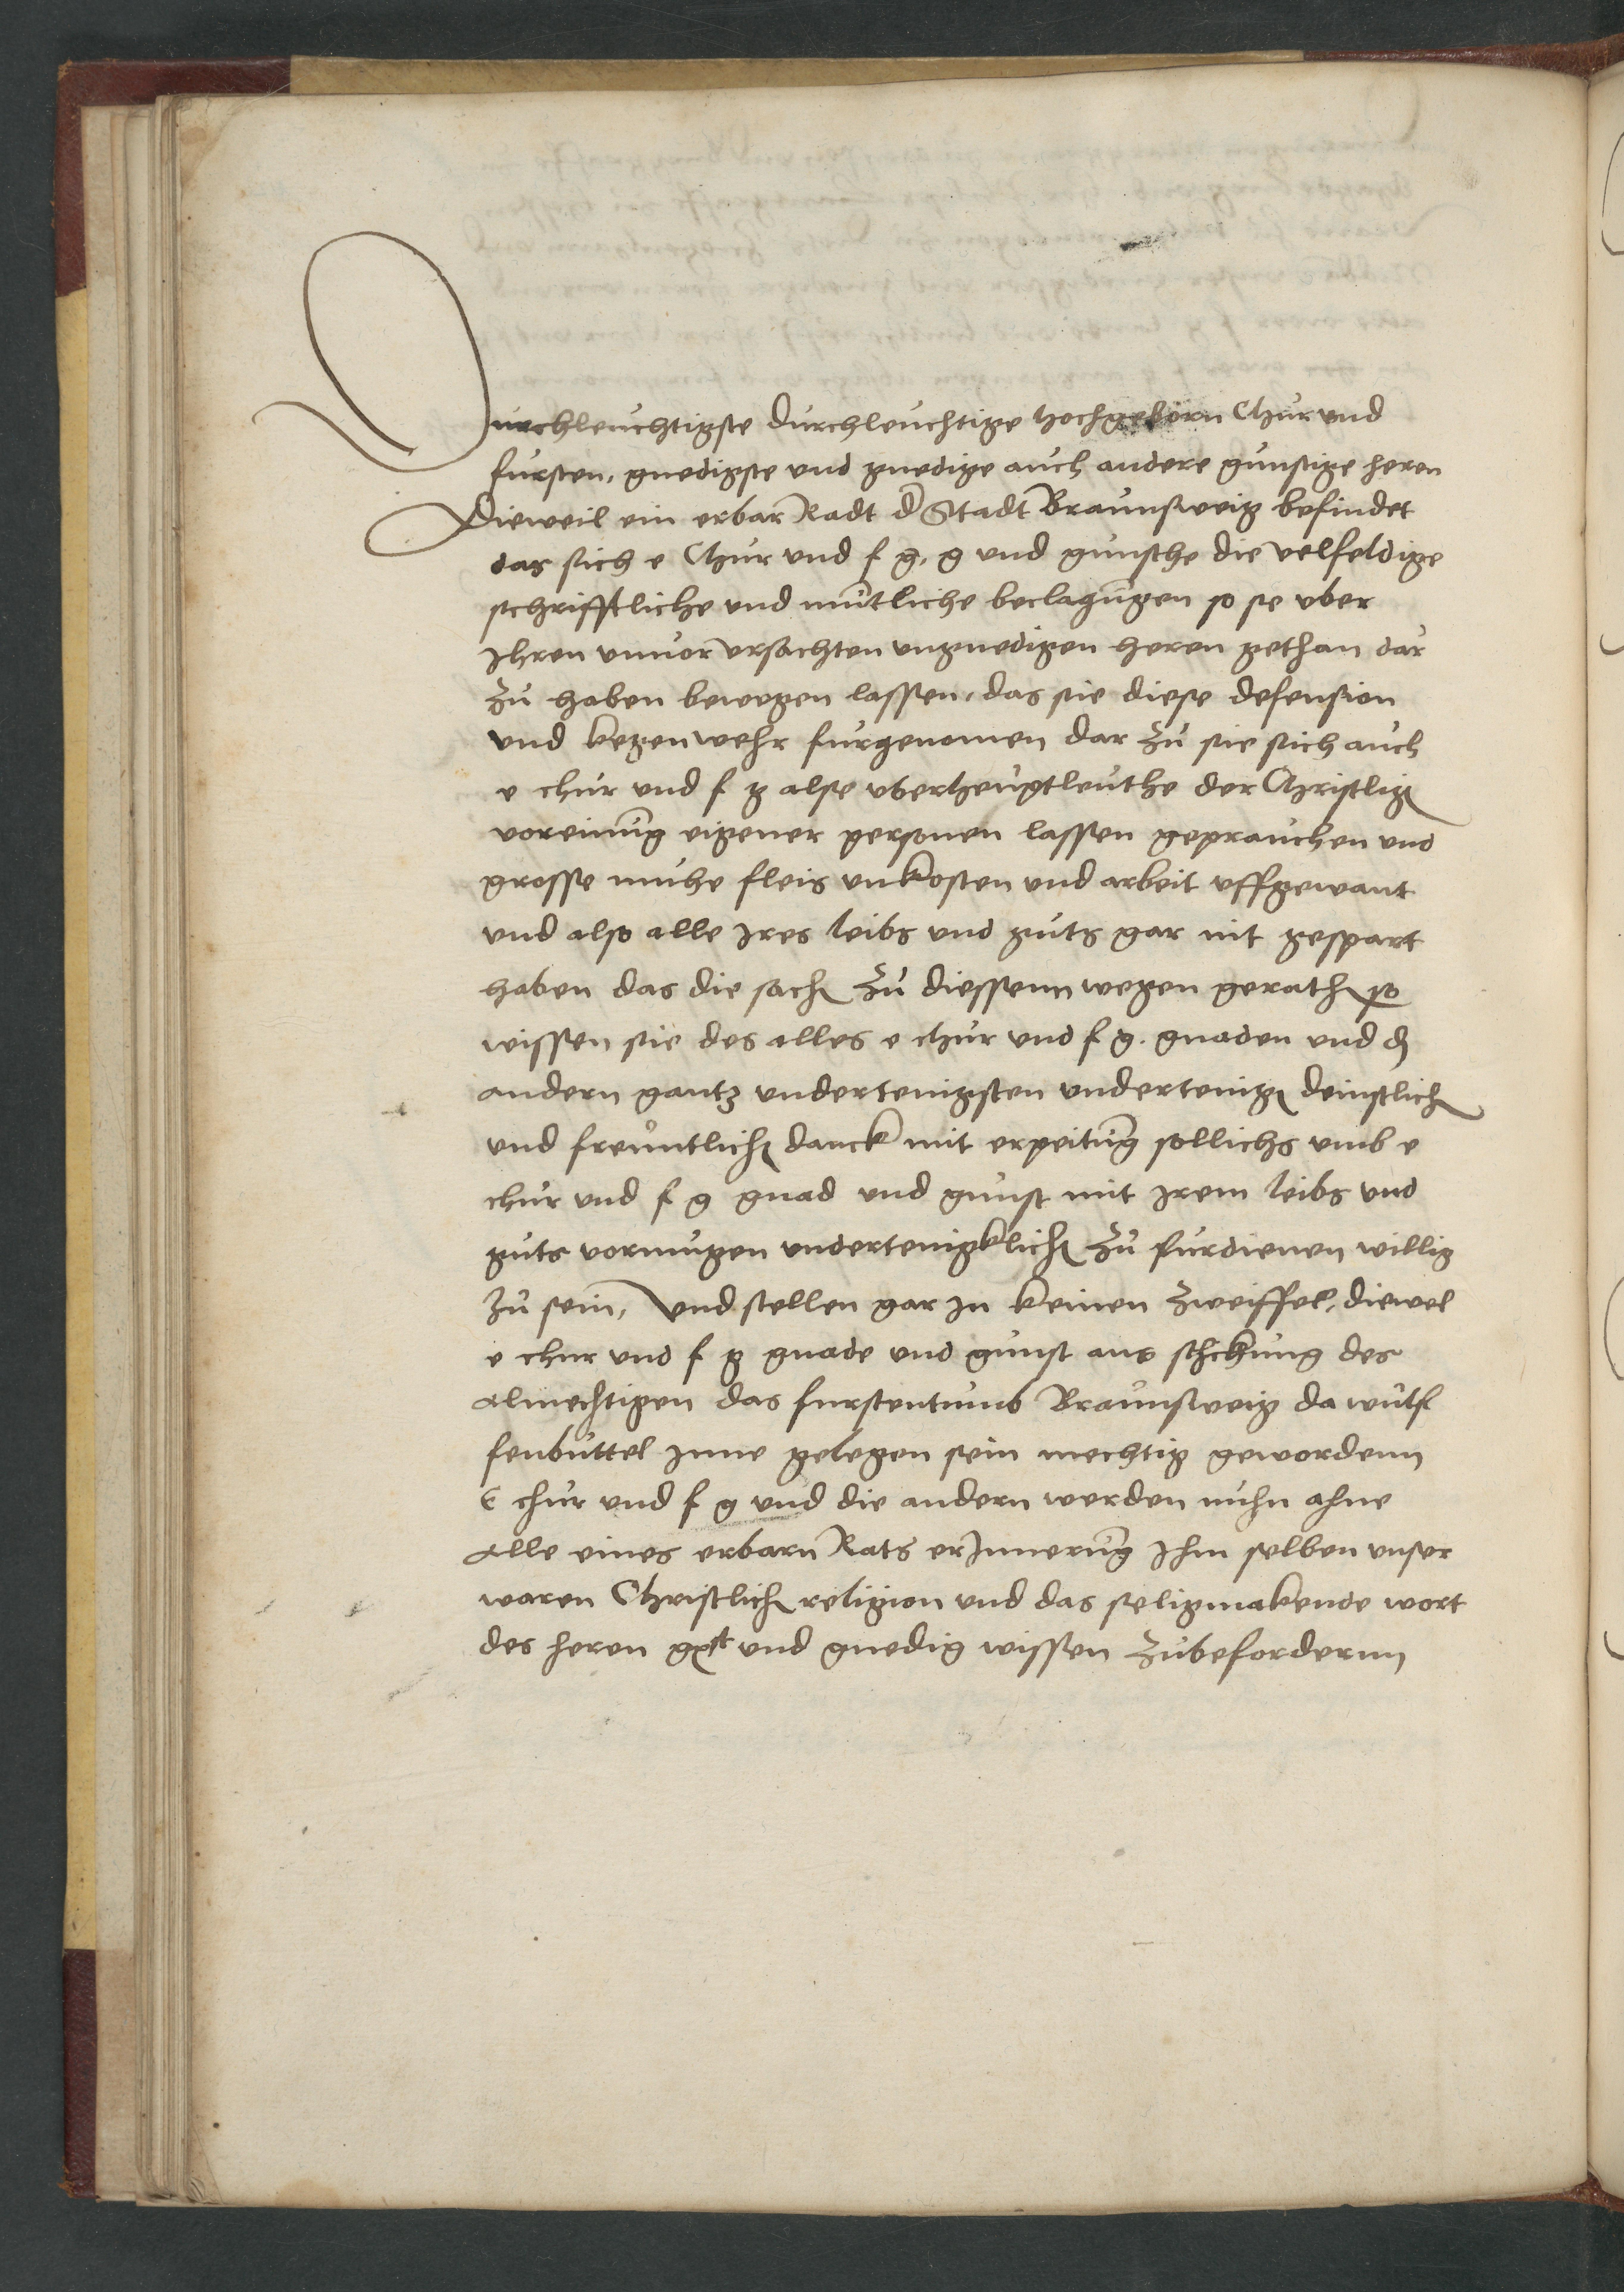 Durchleuchtigste durchleuchtige hochgeborn Chur und
fursten, gnedigste und gnedige auch andere gunstige heren
Dieweil ein erbar Radt d Stadt Braunsweig befindet
das sich e Chur und f g, g und gunsthe die velfeldige
schrifftliche und muntliche beclagungen so sie uber
Ihren unvor ursachten ungnedigen heren gethan dar
zu haben bewegen lassen, das sie diese defension
und kegenwehr furgenomen dar zu sie sich auch
e chur und f g alse uberheuptleuthe der Christligen
voreinung eigener personen lassen geprauchen und
grosse muhe fleis unkosten und arbeit uffgewant
und also alle Ires leibs und guts gar nit gespart
haben das die sachen zu diessenn wegen gerathen so
wissen sie des alles e chur und f g. gnaden und den
andern gantz undertenigsten undertenigen deinstlichen
und freuntlichen danck mit erpeitung sollichs umb e
chur und f g gnad und gunst mit Irem leibs und
guts vormugen undertenigklichen zu furdienen willig
zu sein, Und stellen gar In keinen zweiffel, diewel
e chur und f g gnade und gunst aus schckung des
almechtigen das furstentumb Braunsweig da wulf
fenbuttel Inne gelegen sein mechtig gewordenn
E chur und f g und die andern werden nuhn ahne
alle eines erbarn Rats erInnerung Ihm selben unser
waren Christlichen religion und das seligmakende wort
des heren und gnedig wissen zubefordernn